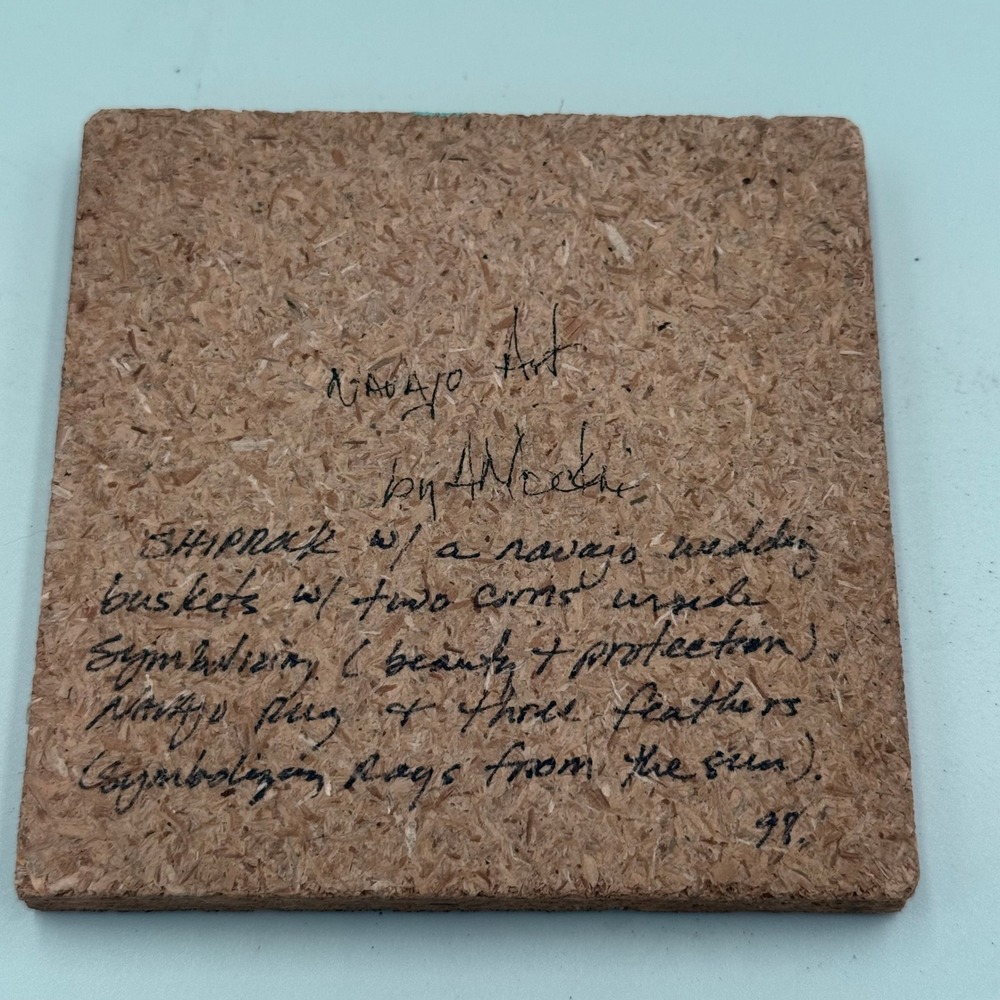 NAVAJO Art
by
SHIPROCK w/ a navajo wedding
baskets w/ two corns inside
Symbolizing (beauty + protection).
NAVAJO Rug + three feathers
(Symbolizing Rays from the sun).